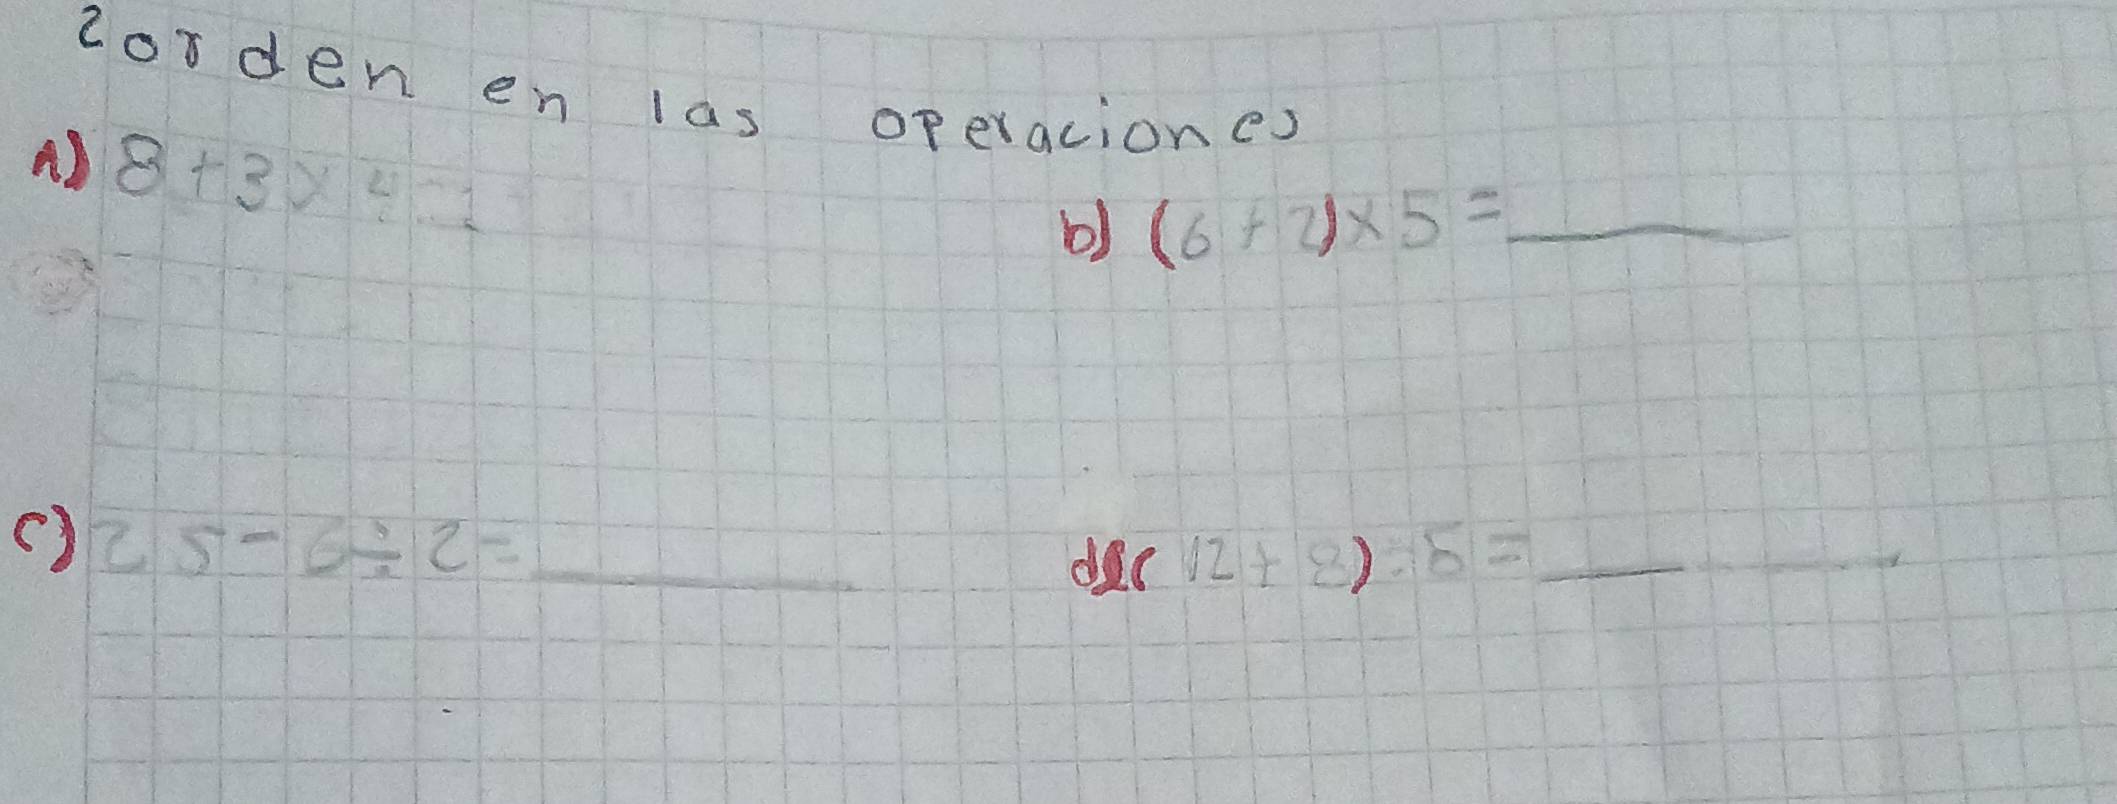 2 orden en las operaciones
a) 8 + 3 x 4 = _
b) (6 + 2) x 5 = ____
c) 25 - 6 ÷ 2 = ____
d) (12 + 8) ÷ 5 = ____